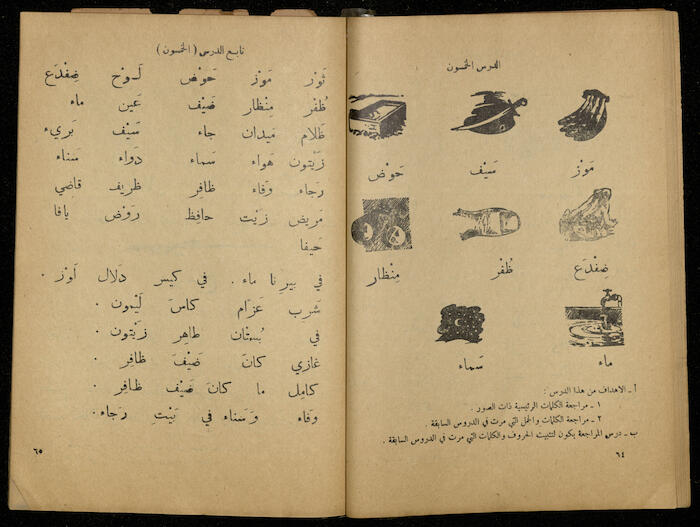 الدرس الخمسون
مَوْز سَيْف حَوْض
ضِفْدَع ظُفْر مِنْظار
ماء سَماء
أ ـ الاهداف من هذا الدرس :
١ ـ مراجعة الكلمات الرئيسية ذات الصور .
٢ ـ مراجعة الكلمات والجمل التي مرت في الدروس السابقة .
ب ـ درس المراجعة يكون لتثبيت الحروف والكلمات التي مرت في الدروس السابقة .
٦٤
تابع الدرس ( الخمسون )
ثَوْر مَوْز حَوْض لَوْح ضِفْدَع
ظُفْر مِنْظار ضَيْف عَين ماء
ظَلام مَيدان جاء سَيْف بَريء
زَيْتون هَواء سَماء دَواء سَناء
رَجاء وَفاء ظافِر ظَريف قاضي
مَريض زَيْت حافِظ رَوْض يافا
حَيفا
في بيرنا ماء . في كيس دَلال لَوْز .
شَرِب عَزّام كاسَ لَيْمون .
في بُسْتان طاهِر زَيْتون .
غازي كانَ ضَيْفَ ظافِر .
كامِل ما كانَ ضَيْفَ ظافِر .
وَفاء وَسَناء في بَيْتِ رَجاء .
٦٥